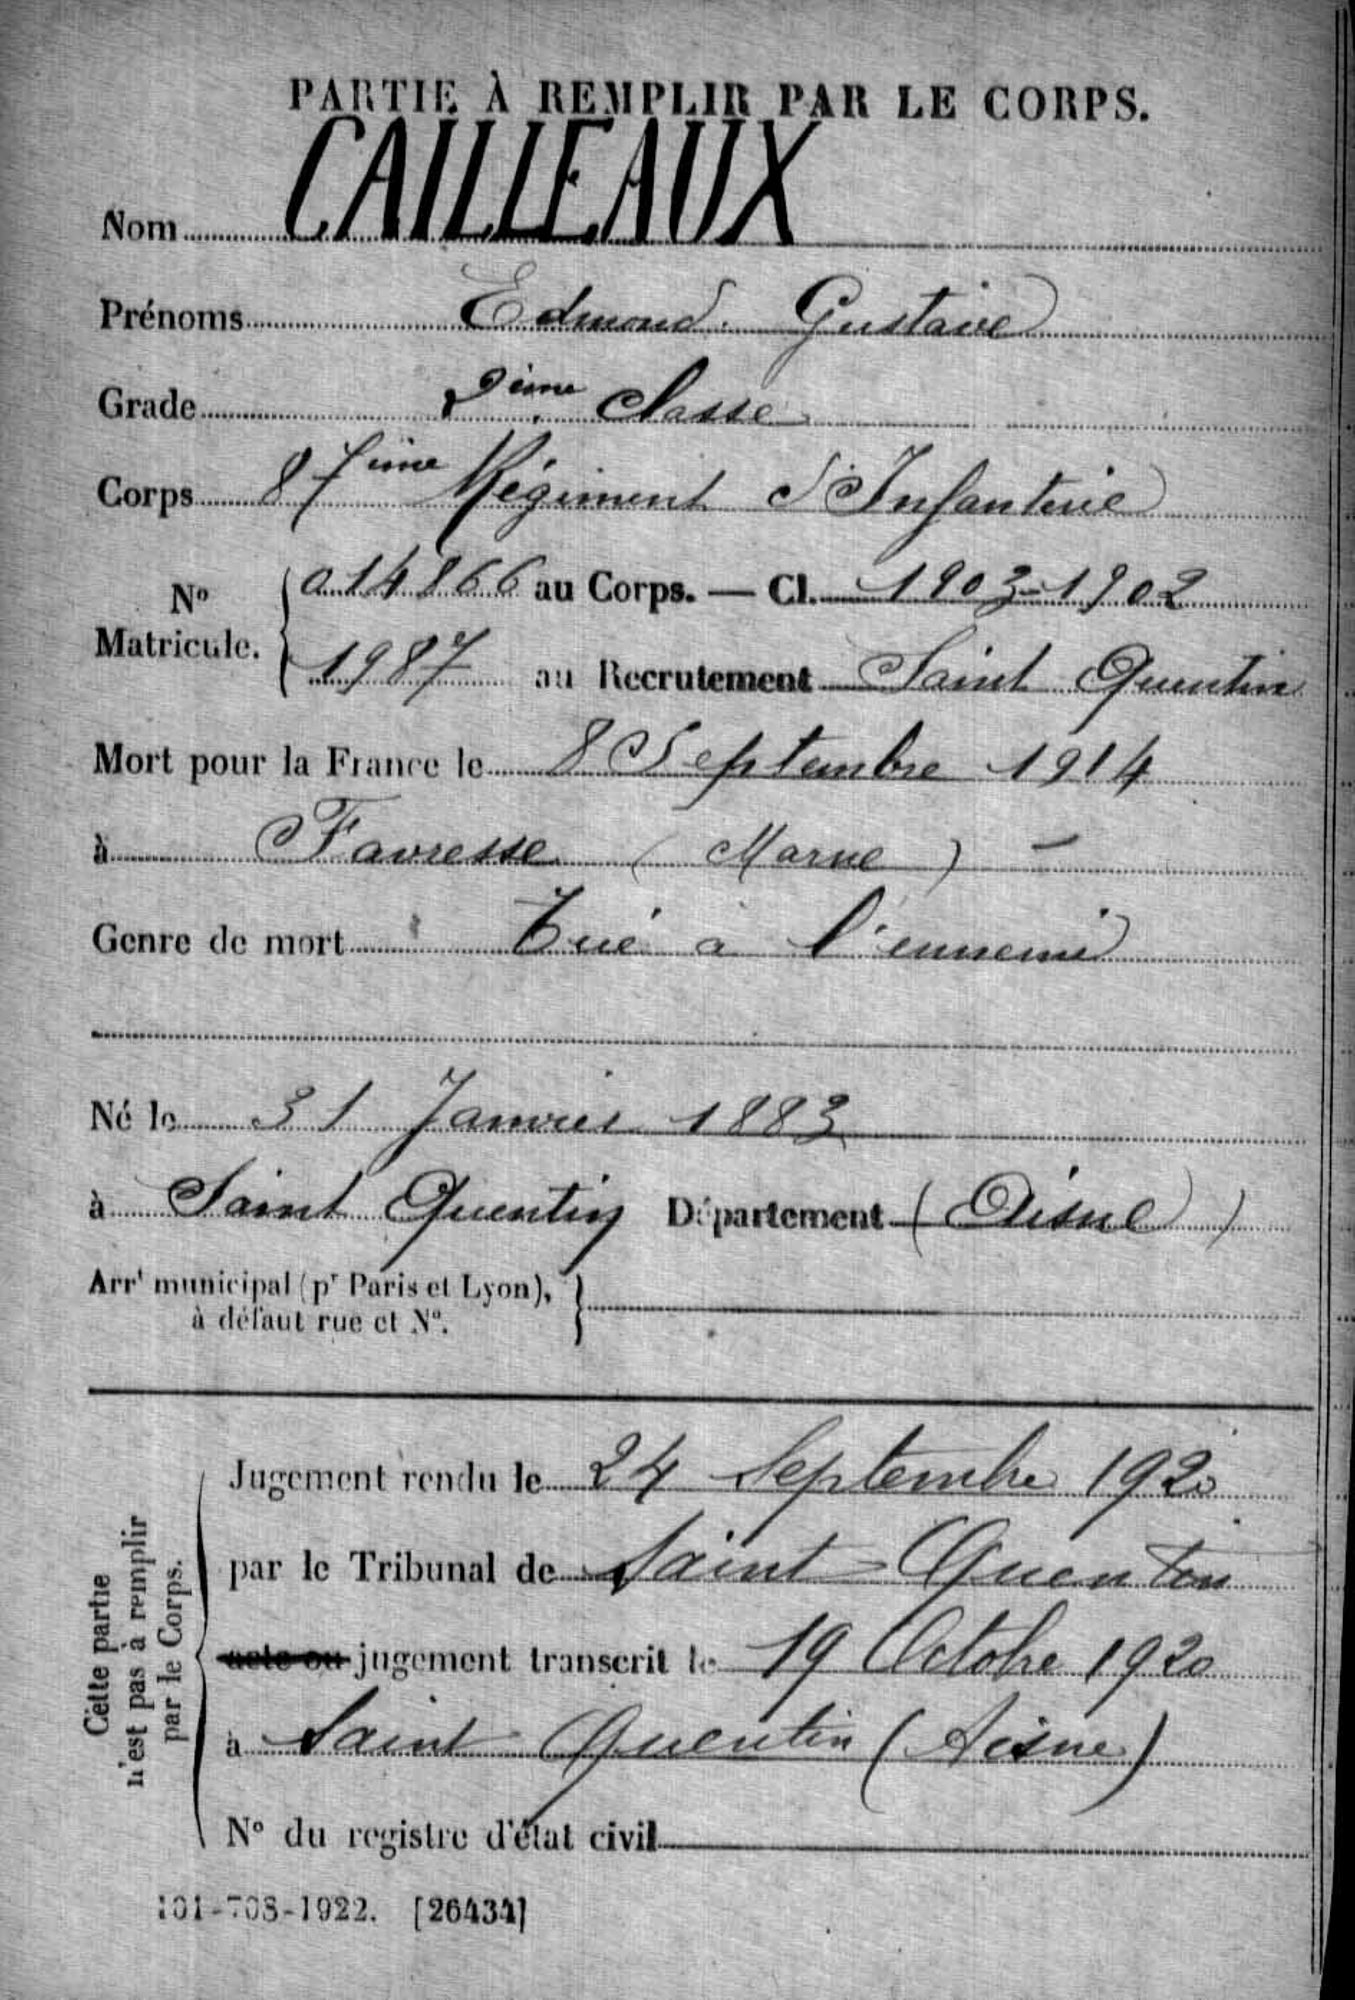 PARTIE À REMPLIR PAR LE CORPS.
Nom CAILLEAUX
Prénoms Edmond Gustave
Grade 2ème Classe
Corps 87ème Régiment d'Infanterie
No Matricule. { 014866 au Corps. — Cl. 1903-1902
1987 au Recrutement Saint Quentin
Mort pour la France le 8 Septembre 1914
à Favresse (Marne) -
Genre de mort Tué à l'ennemi
Né le 31 Janvier 1883
à Saint Quentin Département (Aisne)
Arrt municipal (pr Paris et Lyon), }
à défaut rue et No.
Cette partie
n'est pas à remplir
par le Corps.
Jugement rendu le 24 Septembre 1920
par le Tribunal de Saint-Quentin
acte ou jugement transcrit le 19 Octobre 1920
à Saint Quentin (Aisne)
No du registre d'état civil
101-708-1922. [26434]